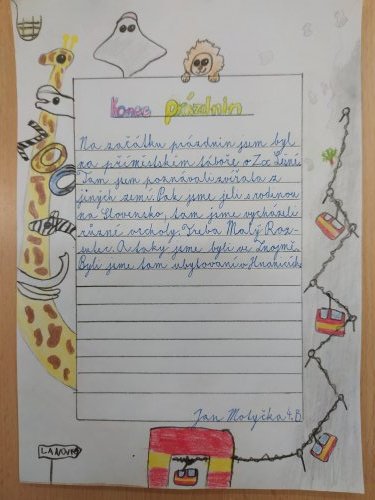 Konec prázdnin
Na začátku prázdnin jsem byl
na příměstském táboře v Zoo Lešné.
Tam jsem poznávali zvířata z
jiných zemí. Pak jsme jeli s rodinou
na Slovensko, tam jsme vycházeli
různé vrcholy. Třeba Malý Roz-
sutec. A taky jsme byli ve Znojmě.
Byli jsme tam ubytovaní v Hnanicích.
Jan Motyčka 4.B
LANOVKA